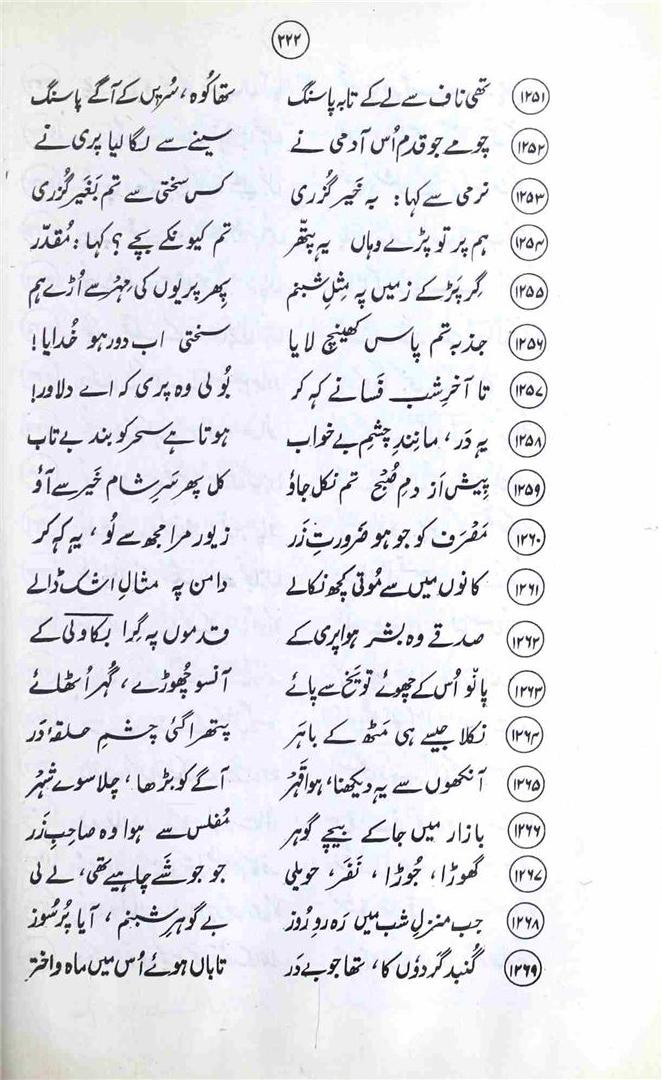 ۲۲۲
۱۲۵۱ تھی ناف سے لے کے تا بہ پا سنگ تھا کُوہ، سُرِیں کے آگے پاسنگ
۱۲۵۲ چومے جو قدم اُس آدمی نے سینے سے لگا لیا پری نے
۱۲۵۳ نرمی سے کہا: بہ خَیر گُزری کس سختی سے تم بَغَیر گُزری
۱۲۵۴ ہم پر تو پڑے وہاں یہ پتّھر تم کیونکے بچے؟ کہا: مُقدّر
۱۲۵۵ گِر پَڑ کے زمیں پہ مِثلِ شبنم پِھر پریوں کی مِہْر سے اُڑے ہم
۱۲۵۶ جذبہ تم پاس کھینچ لایا سختی اب دور ہو خُدایا!
۱۲۵۷ تا آخرِ شب فَسانے کہہ کر بُولی وہ پری کہ اے دلاور!
۱۲۵۸ یہ دَر، مانندِ چشمِ بے خواب ہوتا ہے سحر کو بند بے تاب
۱۲۵۹ پیش اَز دمِ صُبْح تم نکل جاؤ کل پھر سَرِ شام خَیر سے آؤ
۱۲۶۰ مَصْرَف کو جو ہو ضَرورتِ زَر زیور مرا مجھ سے لُو، یہ کہہ کر
۱۲۶۱ کانوں میں سے مُوتی کچھ نکالے دامن پہ مثالِ اشک ڈالے
۱۲۶۲ صدقے وہ بشر ہوا پری کے قدموں پہ گِرا بکاولی کے
۱۲۶۳ پانْو اُس کے چھوئے تو یَخ سے پائے آنسو چُھوڑے، گُہر اُٹھائے
۱۲۶۴ نکلا جیسے ہی مَٹھ کے باہَر پتھرا گئی چشمِ حلقۂ دَر
۱۲۶۵ آنکھوں سے یہ دیکھنا، ہوا قَہْر آگے کو بڑھا، چلا سوے شَہْر
۱۲۶۶ بازار میں جا کے بیچے گوہر مُفلس سے ہوا وہ صاحبِ زَر
۱۲۶۷ گھوڑا، جُوڑا، نَفَر، حویلی جو جو شَے چاہیے تھی، لے لی
۱۲۶۸ جب منزلِ شب میں رَہ روِ رُوز بے گوہرِ شبنم، آیا پُر سُوز
۱۲۶۹ گُنبد گَردُوں کا، تھا جو بے دَر تاباں ہوئے اُس میں ماہ و اختر